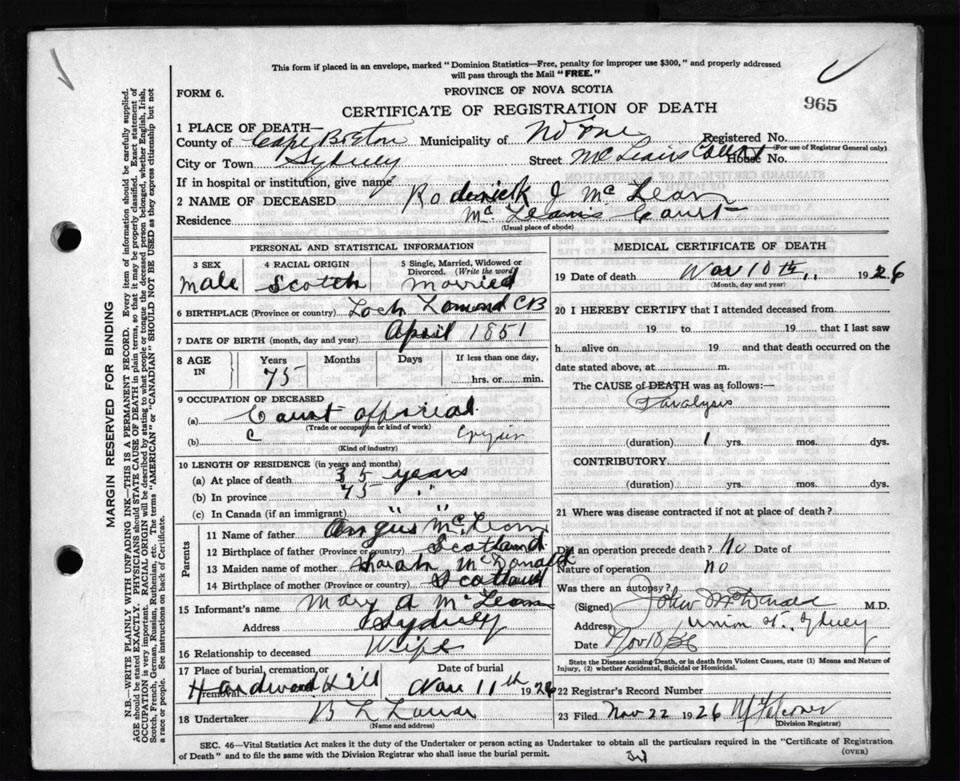 This form if placed in an envelope, marked "Dominion Statistics—Free, penalty for improper use $300," and properly addressed
will pass through the Mail "FREE."
FORM 6.
PROVINCE OF NOVA SCOTIA
CERTIFICATE OF REGISTRATION OF DEATH
965
1 PLACE OF DEATH—
County of Cape Breton Municipality of No one Registered No.
(For use of Registrar General only)
City or Town Sydney Street McLeans Court House No.
If in hospital or institution, give name
2 NAME OF DECEASED Roderick J McLean
Residence McLeans Court
(Usual place of abode)
MARGIN RESERVED FOR BINDING
N.B.—WRITE PLAINLY WITH UNFADING INK—THIS IS A PERMANENT RECORD. Every item of information should be carefully supplied.
AGE should be stated EXACTLY. PHYSICIANS should STATE CAUSE OF DEATH in plain terms, so that it may be properly classified. Exact statement of
OCCUPATION is very important. RACIAL ORIGIN will be described by stating to what people or tongue the deceased person belonged, whether English, Irish,
Scotch, French, German, Russian, Ruthenian, etc. The terms "AMERICAN" or "CANADIAN" SHOULD NOT BE USED as they express citizenship but not
a race or people. See instructions on back of Certificate.
PERSONAL AND STATISTICAL INFORMATION
3 SEX
Male
4 RACIAL ORIGIN
Scotch
5 Single, Married, Widowed or
Divorced. (Write the word)
Married
6 BIRTHPLACE (Province or country) Loch Lomond CB
7 DATE OF BIRTH (month, day and year) April 1851
8 AGE IN
Years Months Days If less than one day,
75 hrs. or min.
9 OCCUPATION OF DECEASED
(a) Court official
(Trade or occupation or kind of work)
(b)
(Kind of industry)
10 LENGTH OF RESIDENCE (in years and months)
(a) At place of death 35 years
(b) In province 75 "
(c) In Canada (if an immigrant) " "
Parents
11 Name of father Angus McLean
12 Birthplace of father (Province or country) Scotland
13 Maiden name of mother Sarah McDonald
14 Birthplace of mother (Province or country) Scotland
15 Informant's name Mary A McLean
Address Sydney
16 Relationship to deceased Wife
17 Place of burial, cremation, or removal
Hardwood Hill
Date of burial
Nov 11th 1926
18 Undertaker
(Name and address)
MEDICAL CERTIFICATE OF DEATH
19 Date of death Nov 10th 1926
(Month, day and year)
20 I HEREBY CERTIFY that I attended deceased from
19 to 19 , that I last saw
h alive on 19 and that death occurred on the
date stated above, at m.
The CAUSE of DEATH was as follows:
Paralysis
(duration) 1 yrs. mos. dys.
CONTRIBUTORY
(duration) yrs. mos. dys.
21 Where was disease contracted if not at place of death?
Did an operation precede death? No Date of
Nature of operation No
Was there an autopsy?
(Signed) John M.D.
Address Union St. Sydney
Date Nov 10 26
State the Disease causing Death, or in death from Violent Causes, state (1) Means and Nature of
Injury, (2) whether Accidental, Suicidal or Homicidal.
22 Registrar's Record Number
23 Filed Nov 22 1926
(Division Registrar)
SEC. 46—Vital Statistics Act makes it the duty of the Undertaker or person acting as Undertaker to obtain all the particulars required in the "Certificate of Registration
of Death" and to file the same with the Division Registrar who shall issue the burial permit.
(OVER)